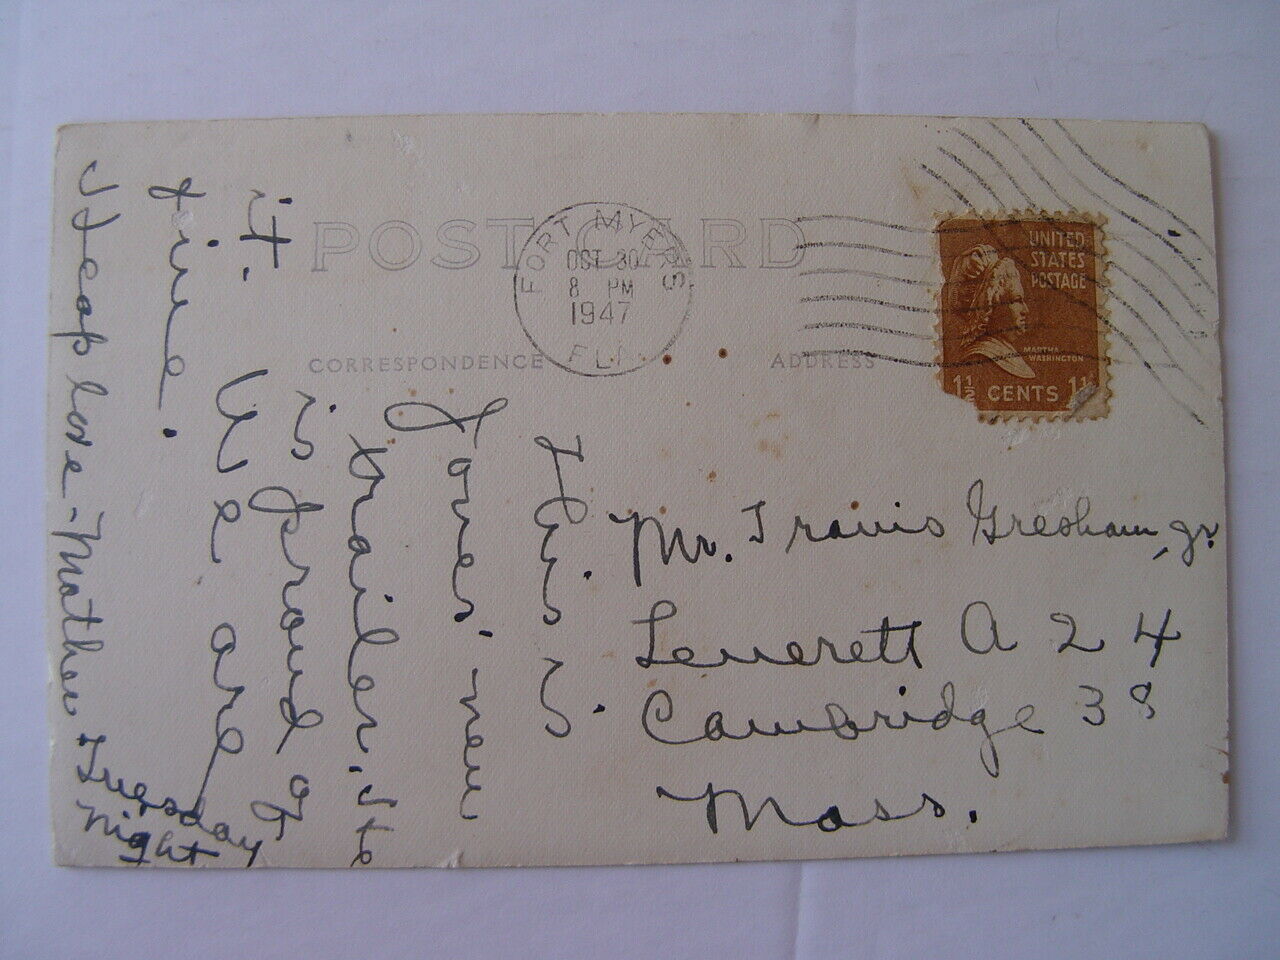 POST CARD
FORT MYERS
OCT 30
8 PM
1947
FLA.
UNITED
STATES
POSTAGE
MARTHA
WASHINGTON
1½ CENTS 1½
CORRESPONDENCE
ADDRESS
This is
Jones' new
trailer. He
is proud of
it. We are
fine.
Heap love - Mother
Tuesday
night
Mr. Travis Gresham, Jr.
Leverett A 24
Cambridge 38
Mass.